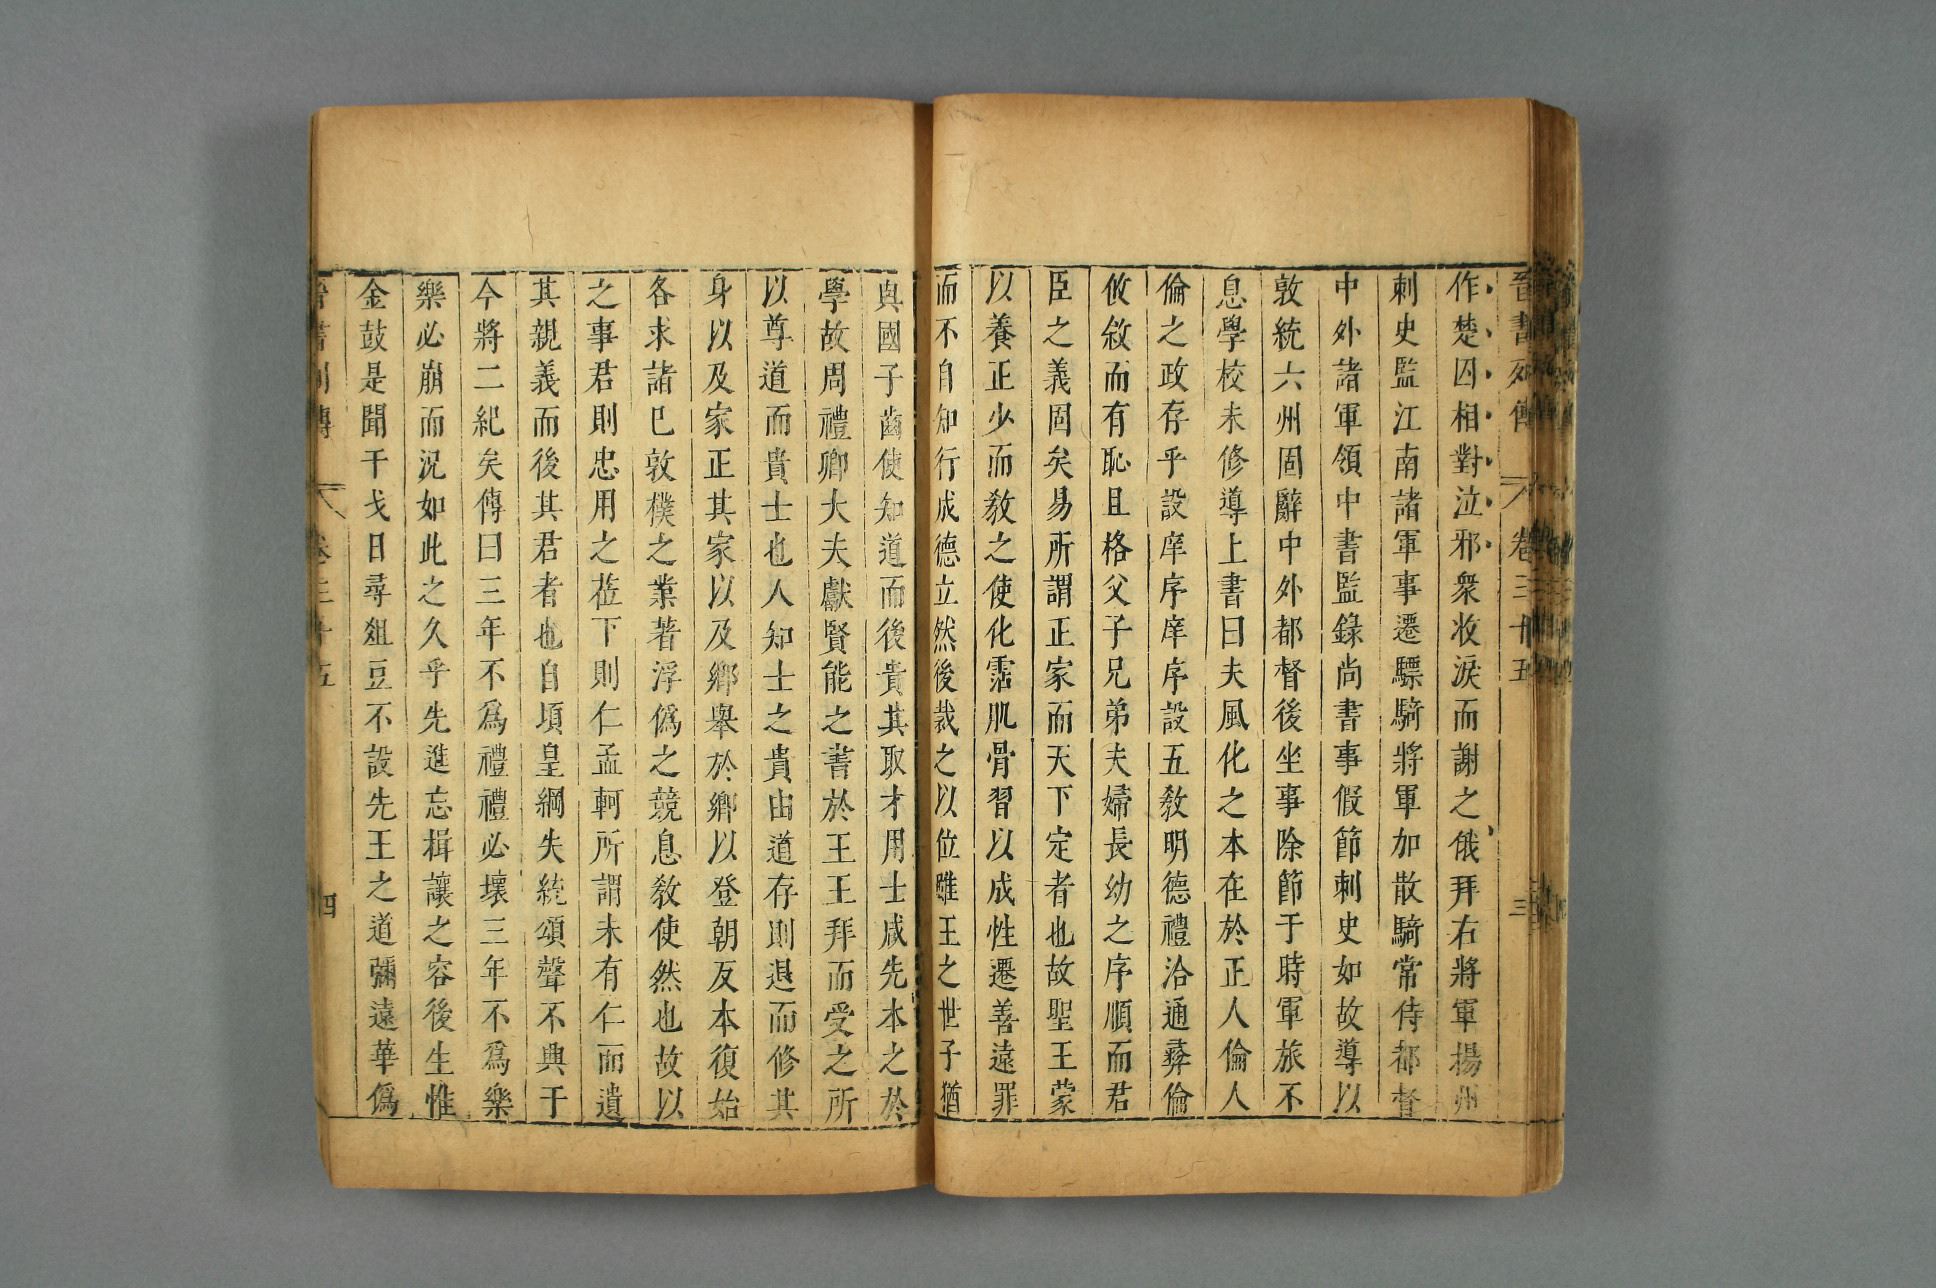 晉書列傳 卷三十五 三
作楚囚相對泣邪衆收淚而謝之俄拜右將軍揚州
刺史監江南諸軍事遷驃騎將軍加散騎常侍都督
中外諸軍領中書監錄尚書事假節刺史如故導以
敦統六州固辭中外都督後坐事除節于時軍旅不
息學校未修導上書曰夫風化之本在於正人倫人
倫之政存乎設庠序庠序設五敎明德禮洽通彛倫
攸敘而有恥且格父子兄弟夫婦長幼之序順而君
臣之義固矣易所謂正家而天下定者也故聖王蒙
以養正少而敎之使化霑肌骨習以成性遷善遠罪
而不自知行成德立然後裁之以位雖王之世子猶
與國子齒使知道而後貴其取才用士咸先本之於
學故周禮卿大夫獻賢能之書於王王拜而受之所
以尊道而貴士也人知士之貴由道存則退而修其
身以及家正其家以及鄉舉於鄉以登朝反本復始
各求諸已敦樸之業著浮僞之競息敎使然也故以
之事君則忠用之莅下則仁孟軻所謂未有仁而遺
其親義而後其君者也自頃皇綱失統頌聲不興于
今將二紀矣傳曰三年不爲禮禮必壞三年不爲樂
樂必崩而況如此之久乎先進忘楫讓之容後生惟
金鼓是聞干戈日尋俎豆不設先王之道彌遠華僞
晉書列傳 卷三十五 四